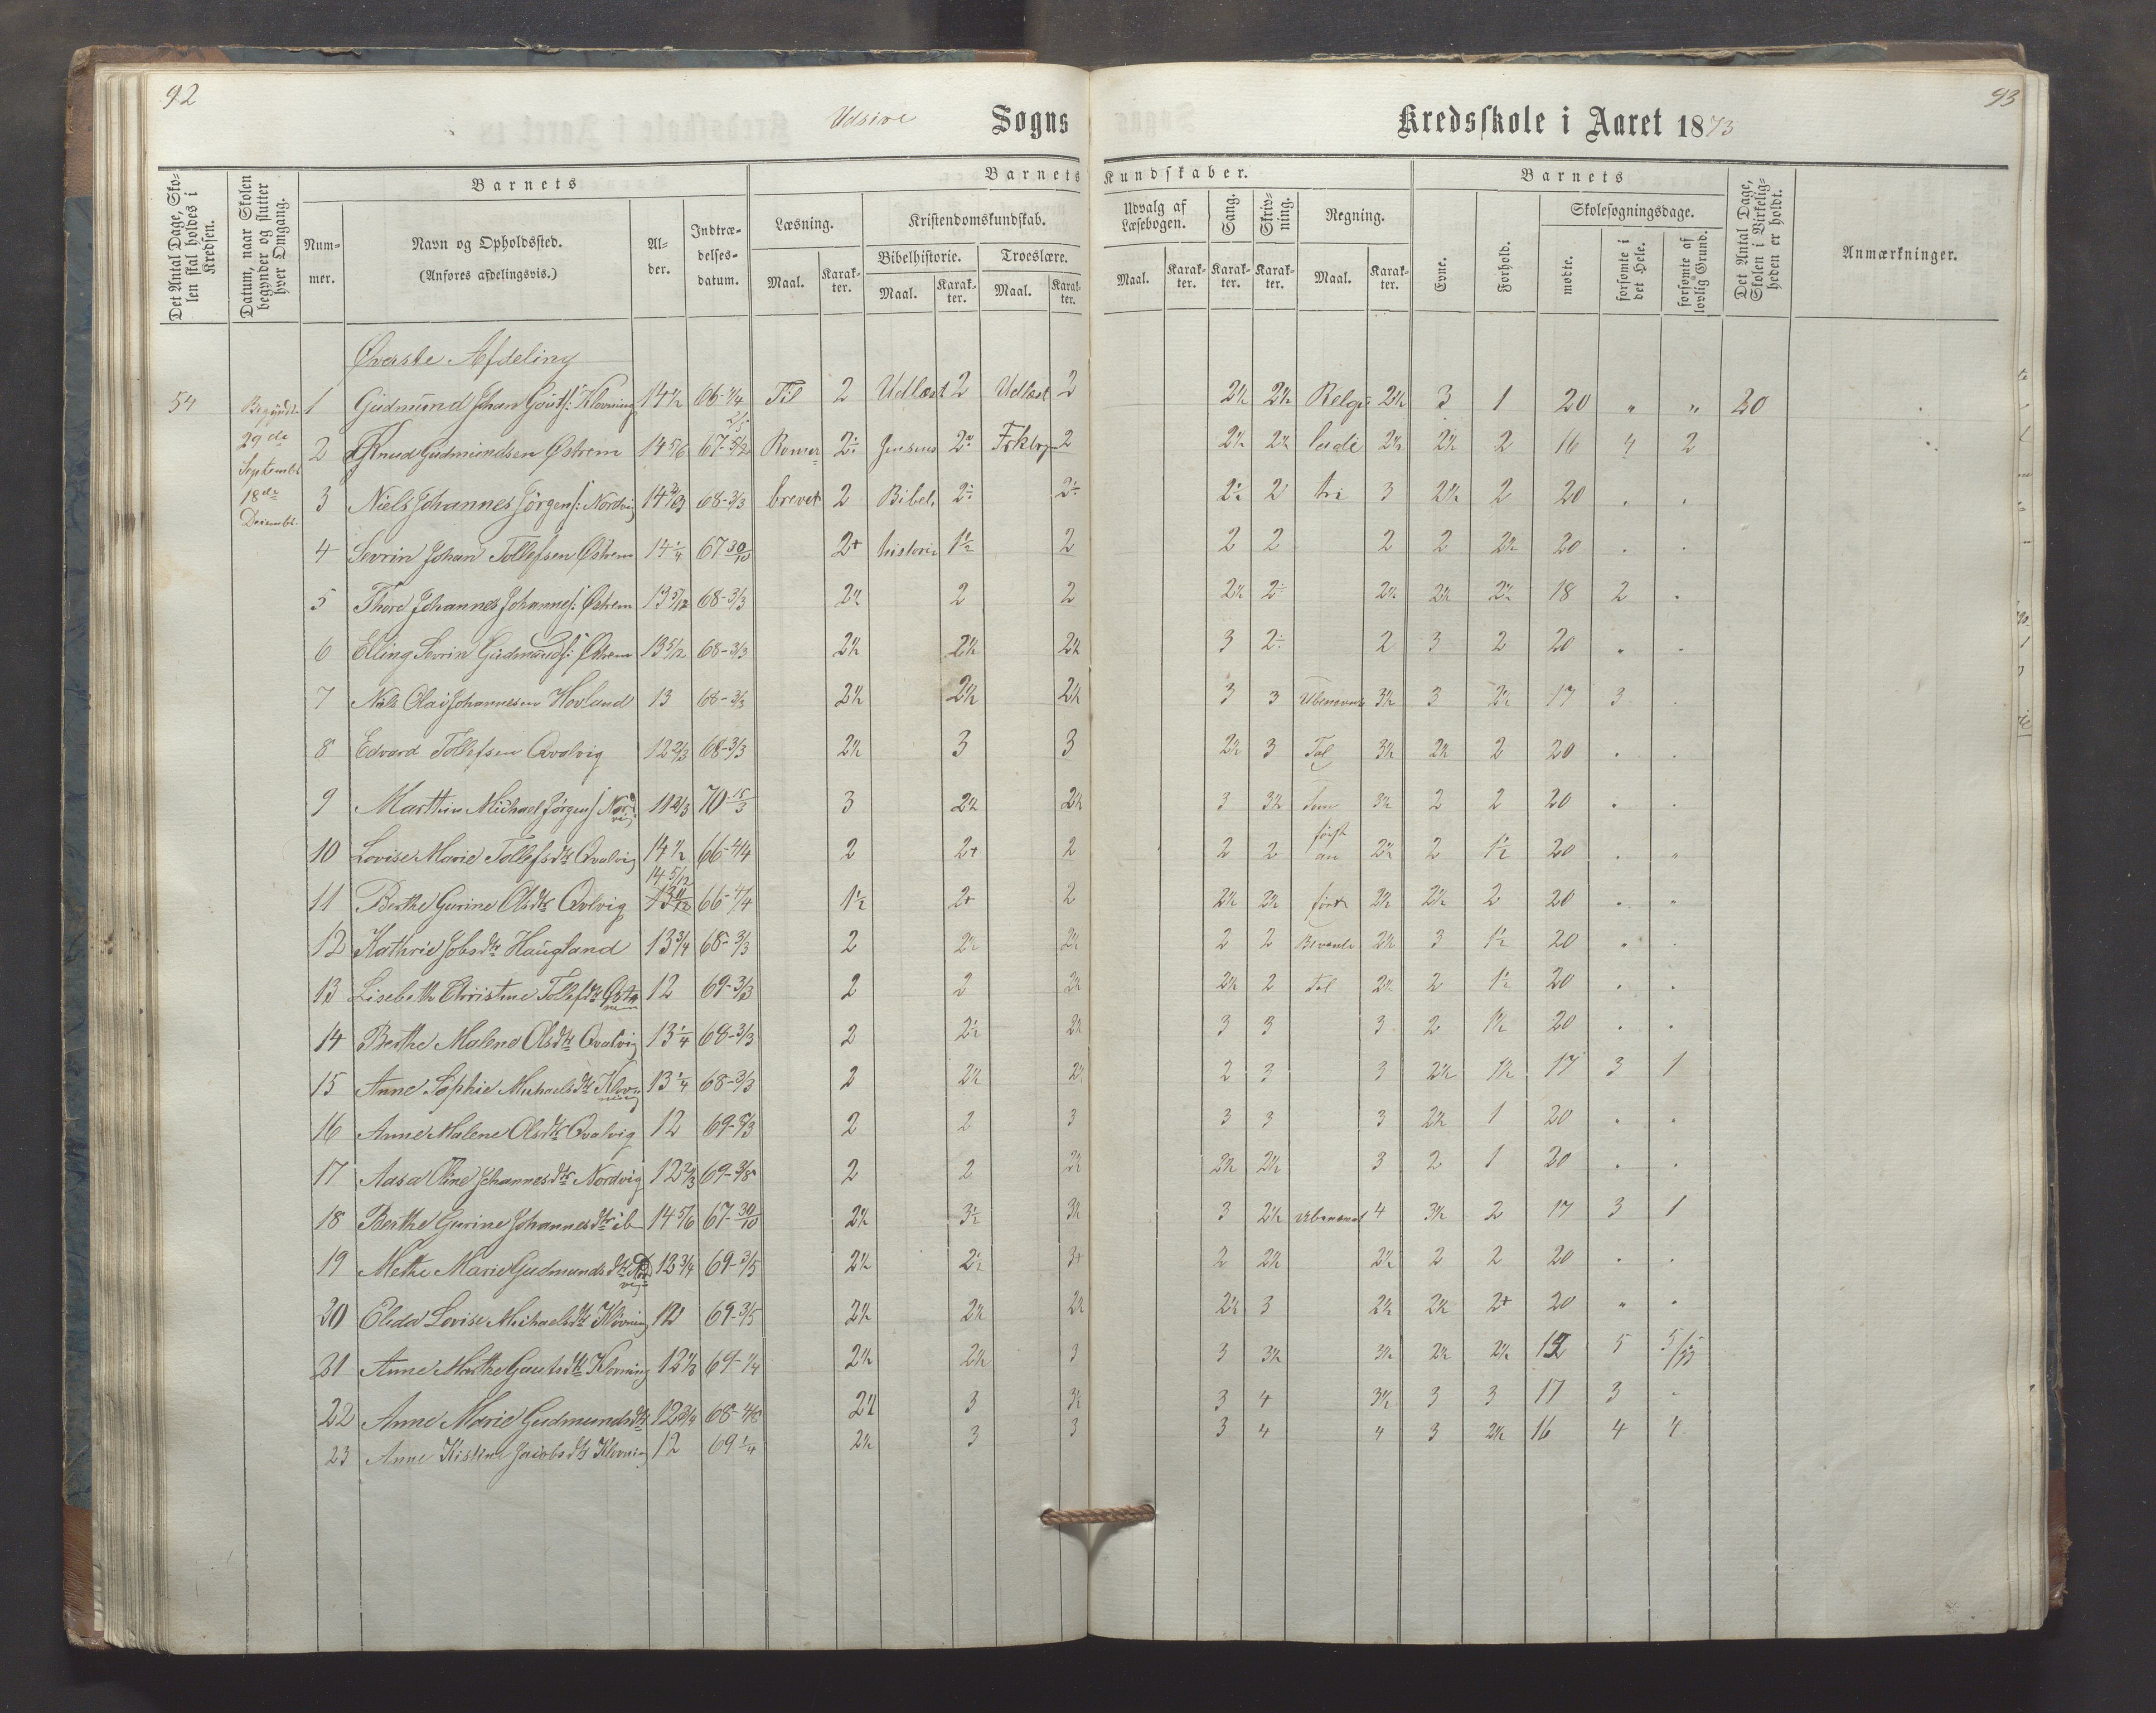 92
93
Udsire Sogns Kredsskole i Aaret 1873
Det Antal Dage, Skolen skal holdes i Kredsen.
Datum, naar Skolen begynder og slutter hver Omgang.
Barnets
Nummer.
Navn og Opholdssted.
(Anføres afdelingsvis.)
Alder.
Indtrædelsesdatum.
Barnets Kundskaber.
Læsning.
Maal.
Karakter.
Kristendomskundskab.
Bibelhistorie.
Maal.
Karakter.
Troeslære.
Maal.
Karakter.
Udvalg af Læsebogen.
Maal.
Karakter.
Sang.
Karakter.
Skrivning.
Karakter.
Regning.
Maal.
Karakter.
Barnets
Evne.
Forhold.
Skolesøgningsdage.
mødte.
forsømte i det Hele.
forsømte af lovlig Grund.
Det Antal Dage, Skolen i Virkeligheden er holdt.
Anmærkninger.
Øverste Afdeling
54 Begyndt 1 Gudmund Johan Gouts: Klovning 14½ 66-4/4 Til 2 Udlæst 2 Udlæst 2 2½ 2½ 2½ 3 1 20 " " 20
29de September 2 Knud Gudmundsen Østrem 14 5/6 67 Romer 2 2 2 2½ 2½ 2½ 2½ 2 16 4 2
18de Decembr. 3 Niels Johannes Jørgens: Nordvig 14 68-3/3 brevet 2 Bibel 2 2 2½ 2 tri 3 2½ 2 20 . .
4 Sevrin Johan Tollefsen Østrem 14¼ 67 30/10 2+ historie 1½ 2 2 2 2 2 2½ 20 . .
5 Thore Johannes Johannes: Østrem 13 5/12 68-3/3 2½ 2 2 2½ 2÷ 2½ 2½ 2½ 18 2 .
6 Elling Sevrin Gudmunds: Østrem 13 5/12 68-3/3 2½ 2½ 2½ 3 2÷ 2 3 2 20 " .
7 Nils Olai Johannesen Hovland 13 68-3/3 2½ 2½ 2½ 3 3 Ubenævnte 3½ 3 2½ 17 3 .
8 Edvard Tollefsen Qvalvig 12 2/3 68-3/3 2½ 3 3 2½ 3 Tal 3½ 2½ 2 20 . .
9 Marthin Michael Jørgens: Nordvig 11 2/3 70-15/3 3 2½ 2½ 3 3½ 3½ 2 2 20 . .
10 Lovise Marie Tollefsdtr Qvalvig 14½ 66-4/4 2 2+ 2 2 2 2½ 2 1½ 20 . "
11 Berthe Gurine Olsdtr Qvlvig 14 5/12 66-4/4 1½ 2+ 2 2½ 2½ 2½ 2½ 2 20 . "
12 Kathrie Jobsdtr Haugland 13 3/4 68-3/3 2 2½ 2½ 2 2 2½ 3 1½ 20 " .
13 Lisebeth Christine Tollefsdtr Østrem 12 69-3/3 2 2 2½ 2½ 2 Tal 2½ 2 1½ 20 . .
14 Berthe Malene Olsdtr Qvalvig 13¼ 68-3/3 2 2½ 2½ 3 3 3 2 1½ 20 . .
15 Anne Sophie Michaelsdtr Klovning 13¼ 68-3/3 2 2½ 2½ 2 3 3 2½ 1½ 17 3 1
16 Anne Malene Olsdtr Qvalvig 12 69-3/3 2 2 3 3 3 3 2½ 1 20 " .
17 Aasa Oline Johannesdtr Nordvig 12 2/3 69-3/5 2 2 2½ 2½ 2½ 3 2 1 20 . .
18 Berthe Gurine Johannesdtr ib 14 5/6 67-30/10 2½ 3½ 3½ 3 2½ Ubenævnt 4 3½ 2 17 3 1
19 Methe Marie Gudmundsdtr 12 3/4 69-3/5 2½ 2½ 3+ 2 2½ 2½ 2 2 20 . .
20 Elida Lovise Michaelsdtr Klovning 12 69-3/5 2½ 2½ 2½ 2½ 3 2½ 2½ 2+ 20 " "
21 Anne Marthe Gautsdtr Klovning 12½ 69-1/4 2½ 2½ 3 3 3½ 3½ 2½ 2½ 5
22 Anne Marie Gudmundsdtr 12 3/4 68 2½ 3 3½ 3 4 3½ 3 3 17 3 -
23 Anne Kistine Jacobsdtr Klovning 12 69 1/4 2½ 3 3 3 4 4 3 2½ 16 4 4